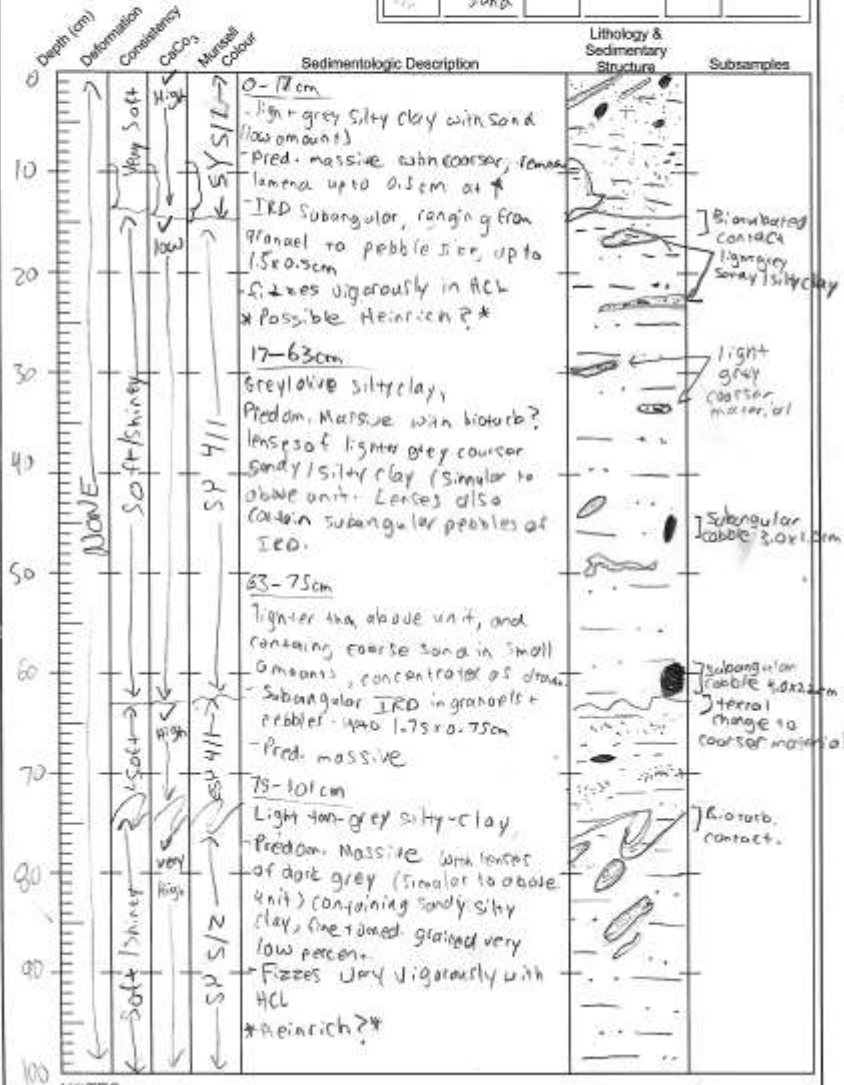 sand
Depth (cm)
Deformation
Consistency
CaCo3
Munsell
Colour
Sedimentologic Description
Lithology &
Sedimentary
Structure
Subsamples
0
10
20
30
40
50
60
70
80
90
100
NONE
Very Soft
Soft/Shiney
Soft
Soft/Shiney
High
low
High
very
High
5Y 5/2
5Y 4/1
5Y 4/1
5Y 5/2
- light grey silty clay with sand
(low amount)
- Pred. massive with coarser,
lamena up to 0.5cm at
- IRD Subangular, ranging from
granuel to pebble size, up to
1.5x0.5cm
- fizzes vigorously in HCL
*Possible Heinrich?*
17-63cm
Grey/olive silty clay,
Predom. Massive with bioturb?
lenses of lighter grey courser
Sandy/silty clay (simular to
above unit. Lenses also
contain subangular pebbles of
IRD.
63-75cm
lighter than above unit, and
containg coarse sand in small
amounts, concentrated as
- Subangular IRD in granuels +
pebbles - upto 1.75x0.75cm
- Pred. massive
75-101cm
Light tan-grey silty-clay
- Predom. Massive with lenses
of dark grey (simular to above
unit) containing sandy silty
clay, fine to med. grained very
low percen.
- Fizzes very vigorously with
HCL
*Heinrich?*
Bioturbated
contact
light grey
sandy/silty clay
light
gray
coarser
material
Subangular
cobble
subangular
cobble
change to
coarser material
Bioturb.
contact.